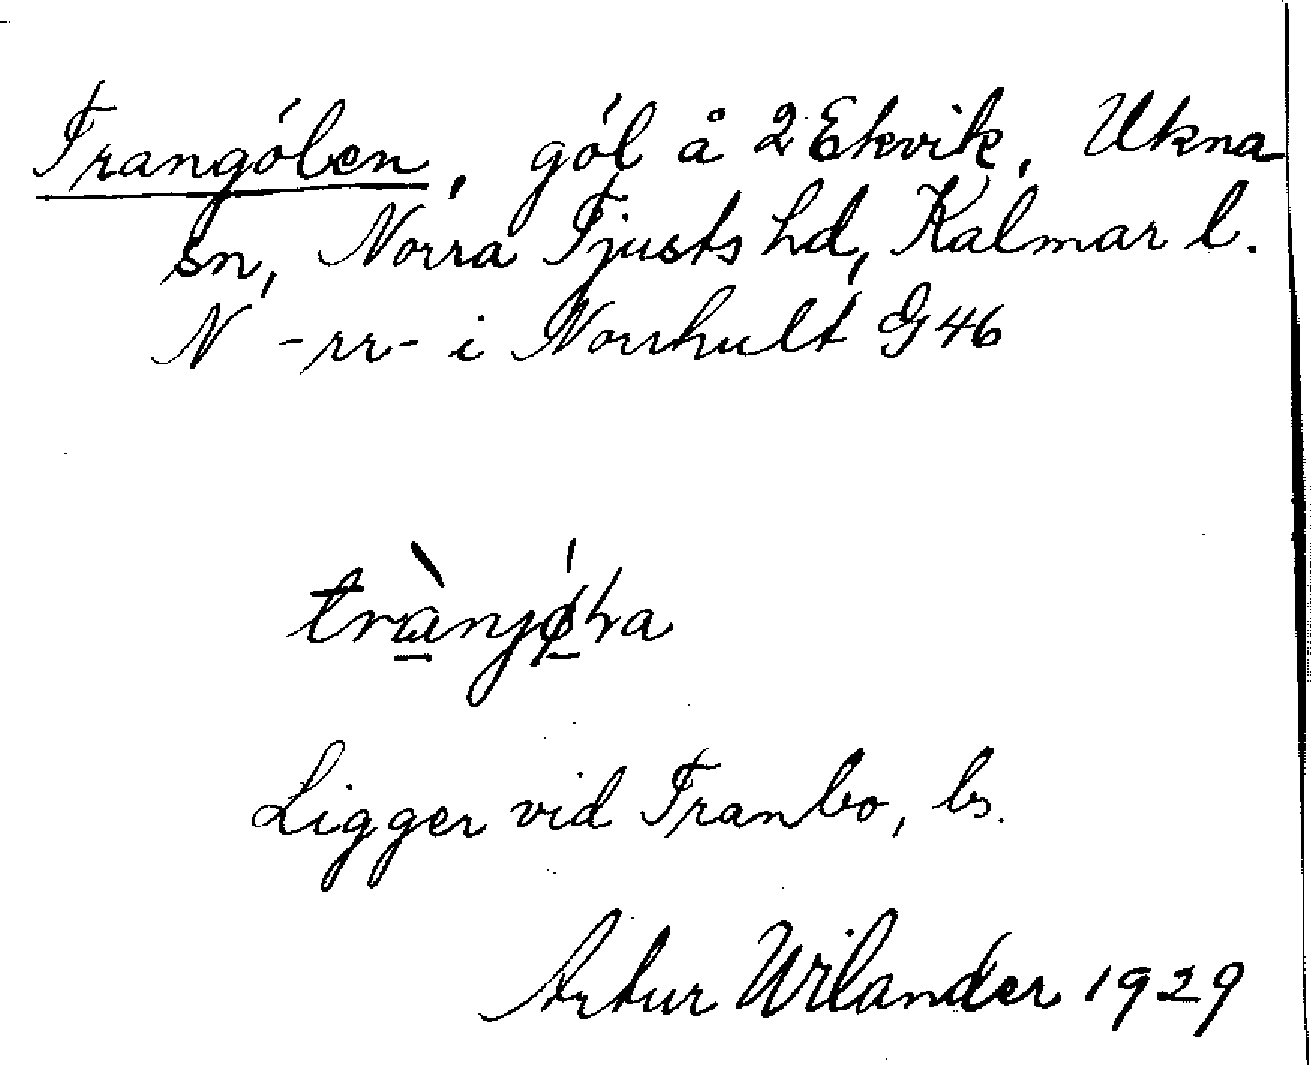 Trangólen, gól å 2 Ekvik, Ukna
sn, Norra Tjusts hd, Kalmar l.
N -rr- i Norrhult G 46
Ligger vid Tranbo, bs.
Artur Wilander 1929